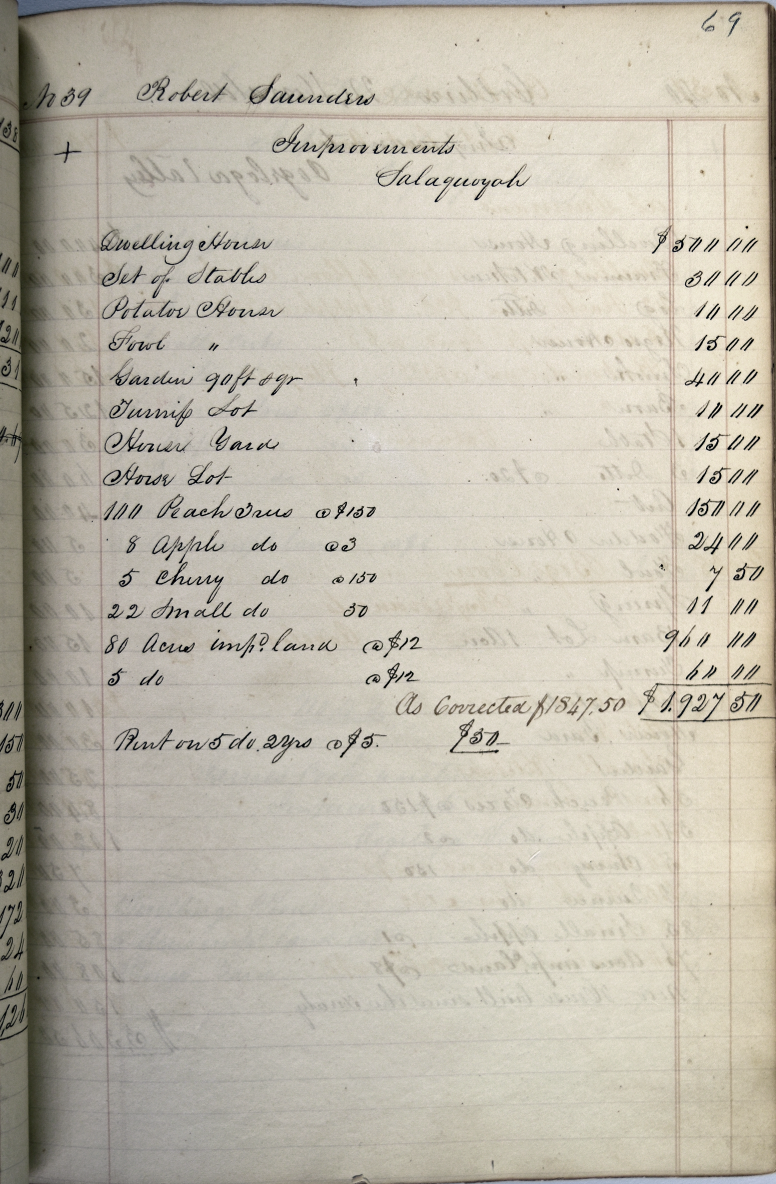 69
No 39 Robert Saunders
+ Improvements
Salaquoyah
Dwelling House $500 00
Set of Stables 30 00
Potatoe House 10 00
Fowl " 15 00
Garden 90 ft sqr 40 00
Turnip Lot 10 00
House Yard 15 00
Horse Lot 15 00
100 Peach Trees @ $150 150 00
8 Apple do @ 3 24 00
5 Cherry do @ 150 7 50
22 Small do 50 11 00
80 Acres impd. land @ $12 960 00
5 do @ $12 60 00
As Corrected $1847.50 $1.927 50
Rent on 5 do. 2 yrs @ $5. $50